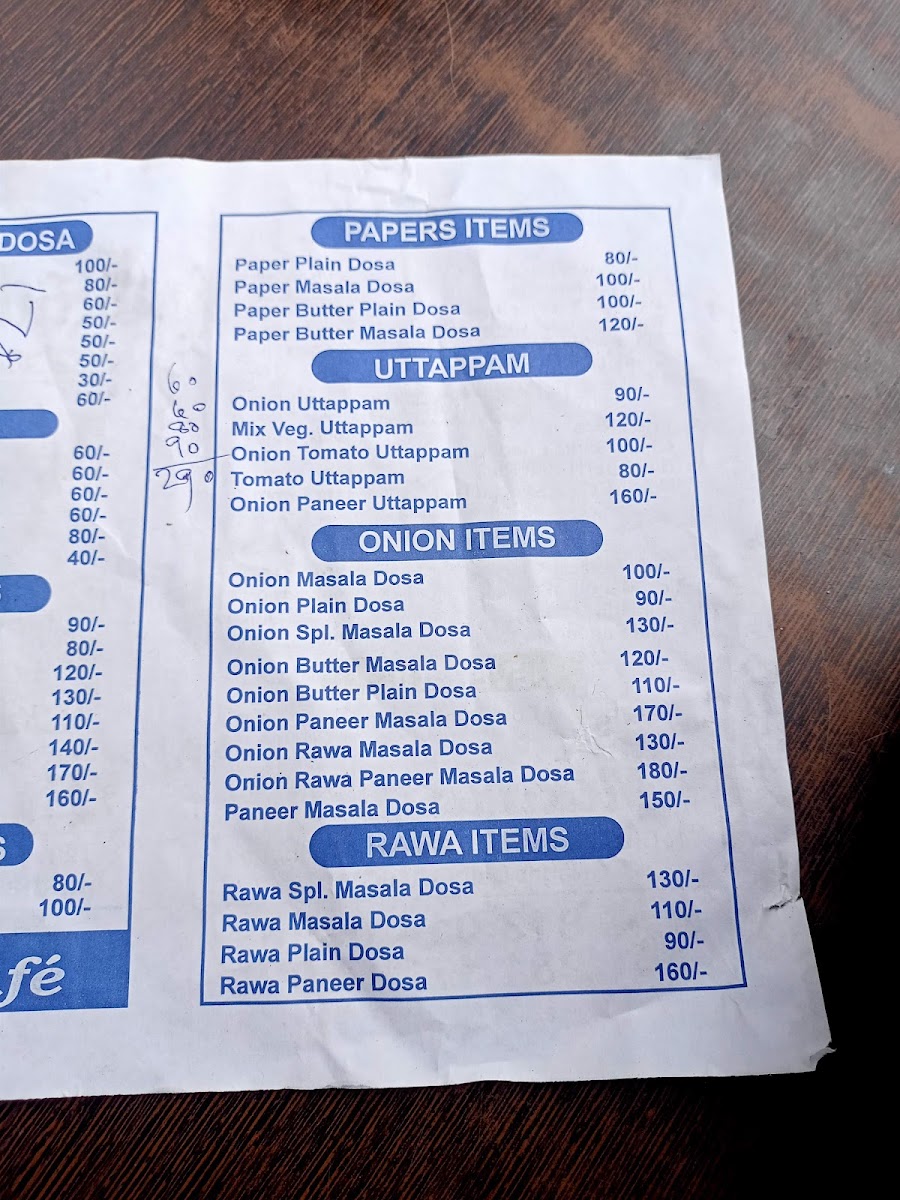 DOSA
100/-
80/-
60/-
50/-
50/-
50/-
30/-
60/-
60/-
60/-
60/-
60/-
80/-
40/-
90/-
80/-
120/-
130/-
110/-
140/-
170/-
160/-
S
80/-
100/-
afé
60
60
80
90
290
PAPERS ITEMS
Paper Plain Dosa 80/-
Paper Masala Dosa 100/-
Paper Butter Plain Dosa 100/-
Paper Butter Masala Dosa 120/-
UTTAPPAM
Onion Uttappam 90/-
Mix Veg. Uttappam 120/-
Onion Tomato Uttappam 100/-
Tomato Uttappam 80/-
Onion Paneer Uttappam 160/-
ONION ITEMS
Onion Masala Dosa 100/-
Onion Plain Dosa 90/-
Onion Spl. Masala Dosa 130/-
Onion Butter Masala Dosa 120/-
Onion Butter Plain Dosa 110/-
Onion Paneer Masala Dosa 170/-
Onion Rawa Masala Dosa 130/-
Onion Rawa Paneer Masala Dosa 180/-
Paneer Masala Dosa 150/-
RAWA ITEMS
Rawa Spl. Masala Dosa 130/-
Rawa Masala Dosa 110/-
Rawa Plain Dosa 90/-
Rawa Paneer Dosa 160/-